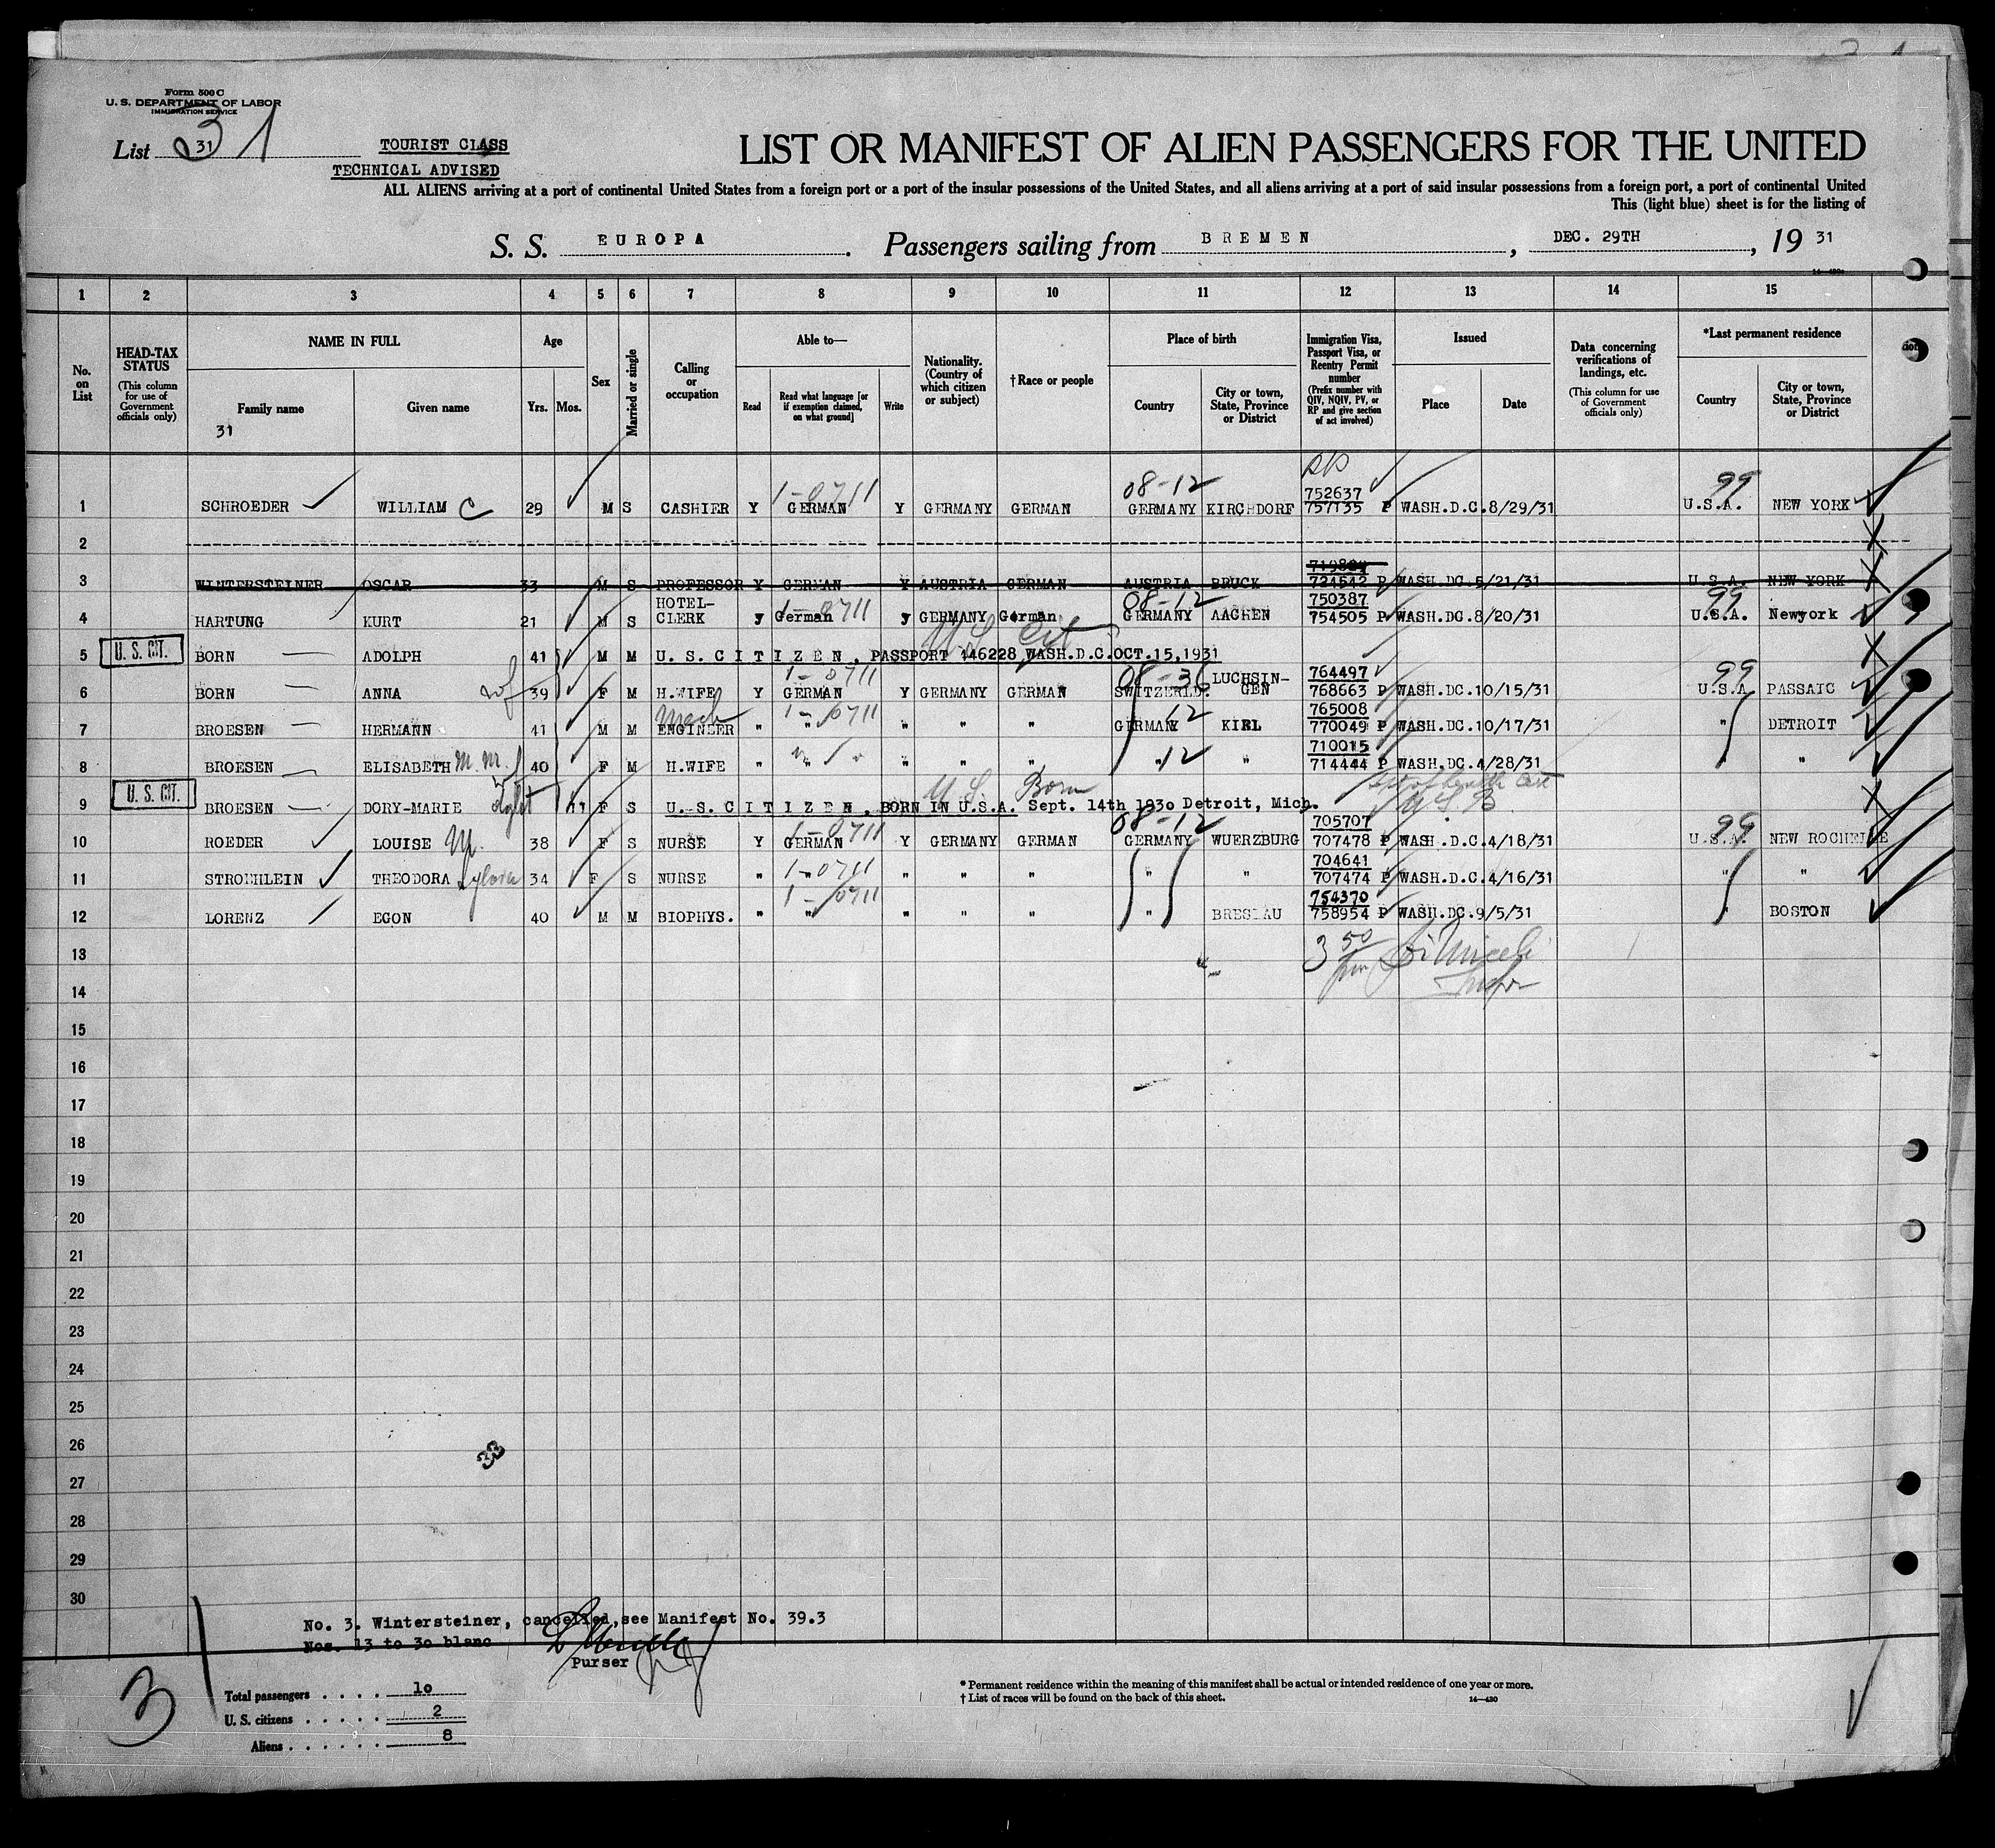 Form 500 C
U. S. DEPARTMENT OF LABOR
IMMIGRATION SERVICE
List 31 31
TOURIST CLASS
TECHNICAL ADVISED
LIST OR MANIFEST OF ALIEN PASSENGERS FOR THE UNITED
ALL ALIENS arriving at a port of continental United States from a foreign port or a port of the insular possessions of the United States, and all aliens arriving at a port of said insular possessions from a foreign port, a port of continental United
This (light blue) sheet is for the listing of
S. S. EUROPA. Passengers sailing from BREMEN, DEC. 29TH, 19 31
1 2 3 4 5 6 7 8 9 10 11 12 13 14 15
No. on List
HEAD-TAX STATUS (This column for use of Government officials only)
NAME IN FULL
Family name
31
Given name
Age
Yrs. Mos.
Sex
Married or single
Calling or occupation
Able to—
Read
Read what language [or if exemption claimed, on what ground]
Write
Nationality. (Country of which citizen or subject)
†Race or people
Place of birth
Country
City or town, State, Province or District
Immigration Visa, Passport Visa, or Reentry Permit number (Prefix number with QIV, NQIV, PV, or RP and give section of act involved)
Issued
Place
Date
Data concerning verifications of landings, etc. (This column for use of Government officials only)
*Last permanent residence
Country
City or town, State, Province or District
1 SCHROEDER WILLIAM C 29 M S CASHIER Y GERMAN 1-0711 Y GERMANY GERMAN 08-12 GERMANY KIRCHDORF 752637 757135 P WASH.D.C. 8/29/31 99 U.S.A. NEW YORK
2
3 WINTERSTEINER OSCAR 33 M S PROFESSOR Y GERMAN Y AUSTRIA GERMAN AUSTRIA BRUCK 724542 P WASH.DC. 5/21/31 U.S.A. NEW YORK
4 HARTUNG KURT 21 M S HOTEL-CLERK y German 1-0711 y GERMANY German 08-12 GERMANY AACHEN 750387 754505 P WASH.DC. 8/20/31 99 U.S.A. Newyork
5 U. S. CIT. BORN ADOLPH 41 M M U. S. CITIZEN, PASSPORT 146228 WASH.D.C.OCT.15,1931 U.S. Cit
6 BORN ANNA wf 39 F M H.WIFE Y GERMAN 1-0711 Y GERMANY GERMAN 08-36 SWITZERLD. LUCHSIN-GEN 764497 768663 P WASH.DC. 10/15/31 99 U.S.A. PASSAIC
7 BROESEN HERMANN 41 M M Mech ENGINEER " " 1-0711 " " " GERMANY 12 KIEL 765008 770049 P WASH.DC. 10/17/31 " DETROIT
8 BROESEN ELISABETH M.M. 40 F M H.WIFE " " " " " " 12 " 710015 714444 P WASH.DC. 4/28/31 " "
9 U. S. CIT. BROESEN DORY-MARIE 11 F S U. S. CITIZEN, BORN IN U.S.A. Sept. 14th 1930 Detroit, Mich. U.S. Born
10 ROEDER LOUISE M. 38 F S NURSE Y GERMAN 1-0711 Y GERMANY GERMAN 08-12 GERMANY WUERZBURG 705707 707478 P WASH.D.C. 4/18/31 99 U.S.A. NEW ROCHELLE
11 STROEHLEIN THEODORA 34 F S NURSE " " 1-0711 " " " " " 704641 707474 P WASH.D.C. 4/16/31 " "
12 LORENZ EGON 40 M M BIOPHYS. " " 1-0711 " " " " BRESLAU 754370 758954 P WASH.DC. 9/5/31 " BOSTON
13 3 50
14
15
16
17
18
19
20
21
22
23
24
25
26
27
28
29
30
No. 3. Wintersteiner, cancelled, see Manifest No. 39.3
Nos. 13 to 30 blanc
Purser
3
Total passengers . . . . 10
U. S. citizens . . . . . 2
Aliens . . . . . . 8
* Permanent residence within the meaning of this manifest shall be actual or intended residence of one year or more.
† List of races will be found on the back of this sheet.
14—430